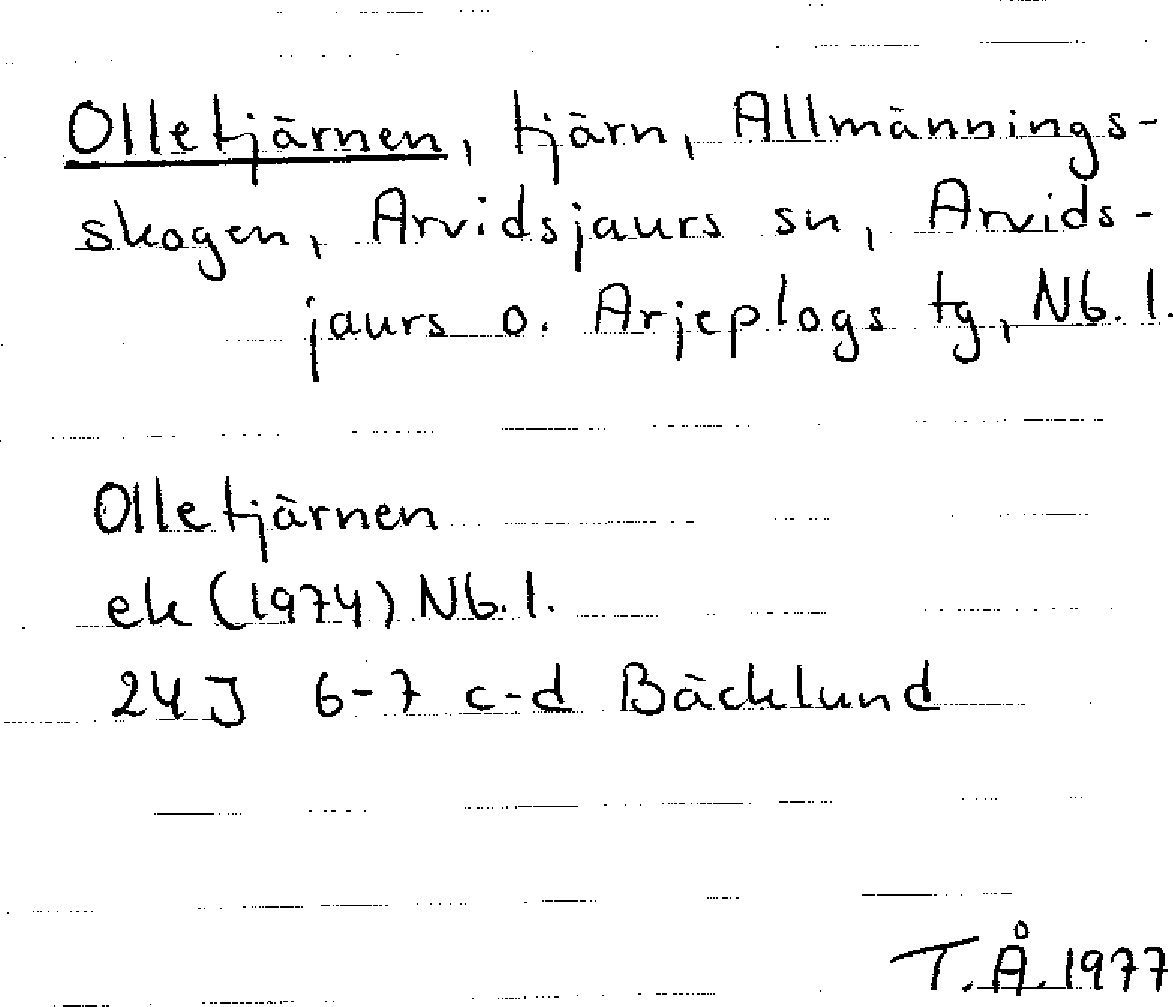 Olletjärnen, tjärn, Allmännings-
skogen, Arvidsjaurs sn, Arvids-
jaurs o. Arjeplogs tg, Nb. l.
Olletjärnen
ek (1974) Nb. l.
24 J 6-7 c-d Bäcklund
T. Å. 1977